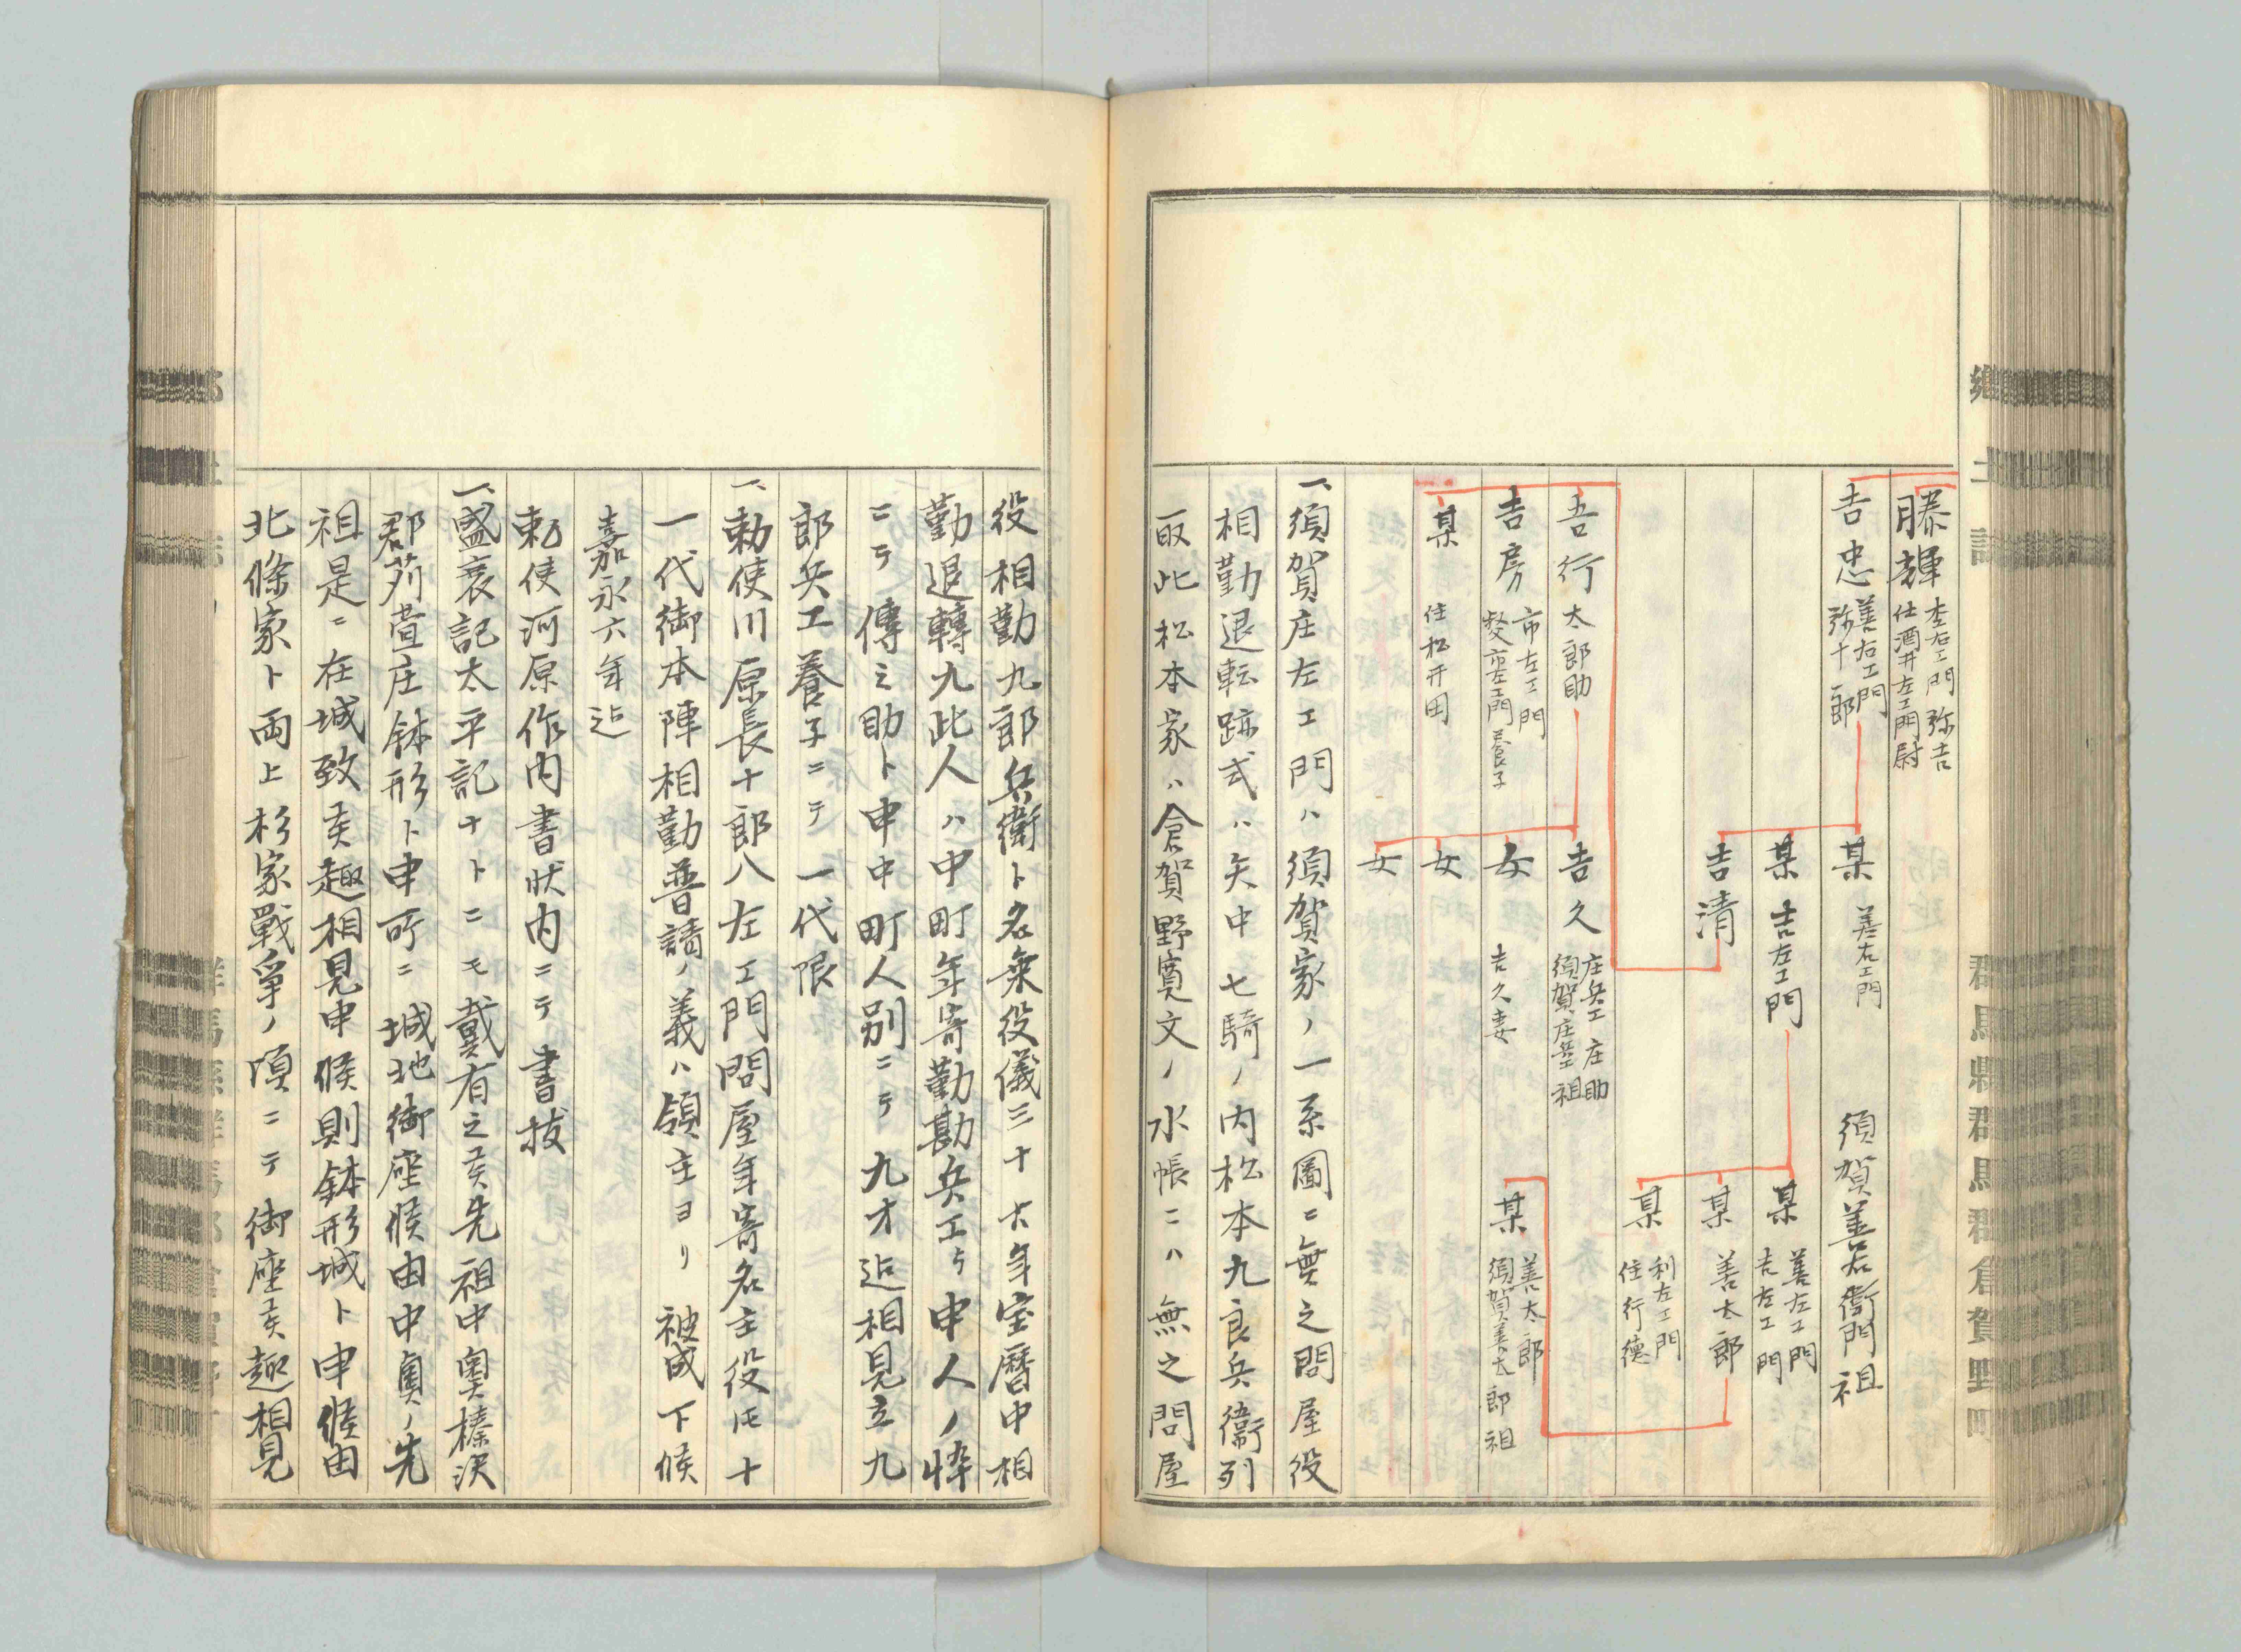 勝輝 杢右エ門 弥吉
仕酒井左エ門尉
吉忠 善右エ門
弥十郎
某 善右エ門
須賀善右衛門祖
某 吉左エ門
某 善左エ門
吉左エ門
吉清
某 善太郎
某 利左エ門
住行徳
吾行 太郎助
吉久 庄兵エ 庄助
須賀庄兵エ祖
吉房 市左エ門
女 吉久妻
某 善太郎
須賀善太郎祖
某 住松井田
女
女
一、須賀庄左エ門ハ須賀家ノ一系圖ニ無之問屋役
相勤退転跡式ハ矢中七騎ノ内松本九良兵衞列
取此松本家ハ倉賀野寛文ノ水帳ニハ無之問屋
役相勤九郎兵衛ト名乗役儀三十六年宝暦中相
勤退轉九此人ハ中町年寄勤勘兵エト申人ノ悴
ニテ傳之助ト申中町人別ニテ九才迠相見立九
郎兵エ養子ニテ一代限
一、勅使川原長十郎八左エ門問屋年寄名主役氏十
一代御本陣相勤普請ノ義ハ領主ヨリ被成下候
嘉永六年迠
勅使河原作内書状内ニテ書抜
一、盛衰記太平記ナトニモ戴有之候先祖中奥榛沢
郡苅萱庄鉢形ト申所ニ城地御座候由中奥ノ先
祖是ニ在城致候趣相見申候則鉢形城ト申候由
北條家ト両上杉家戰爭ノ頃ニテ御座候趣相見
郷土誌
群馬縣群馬郡倉賀野町